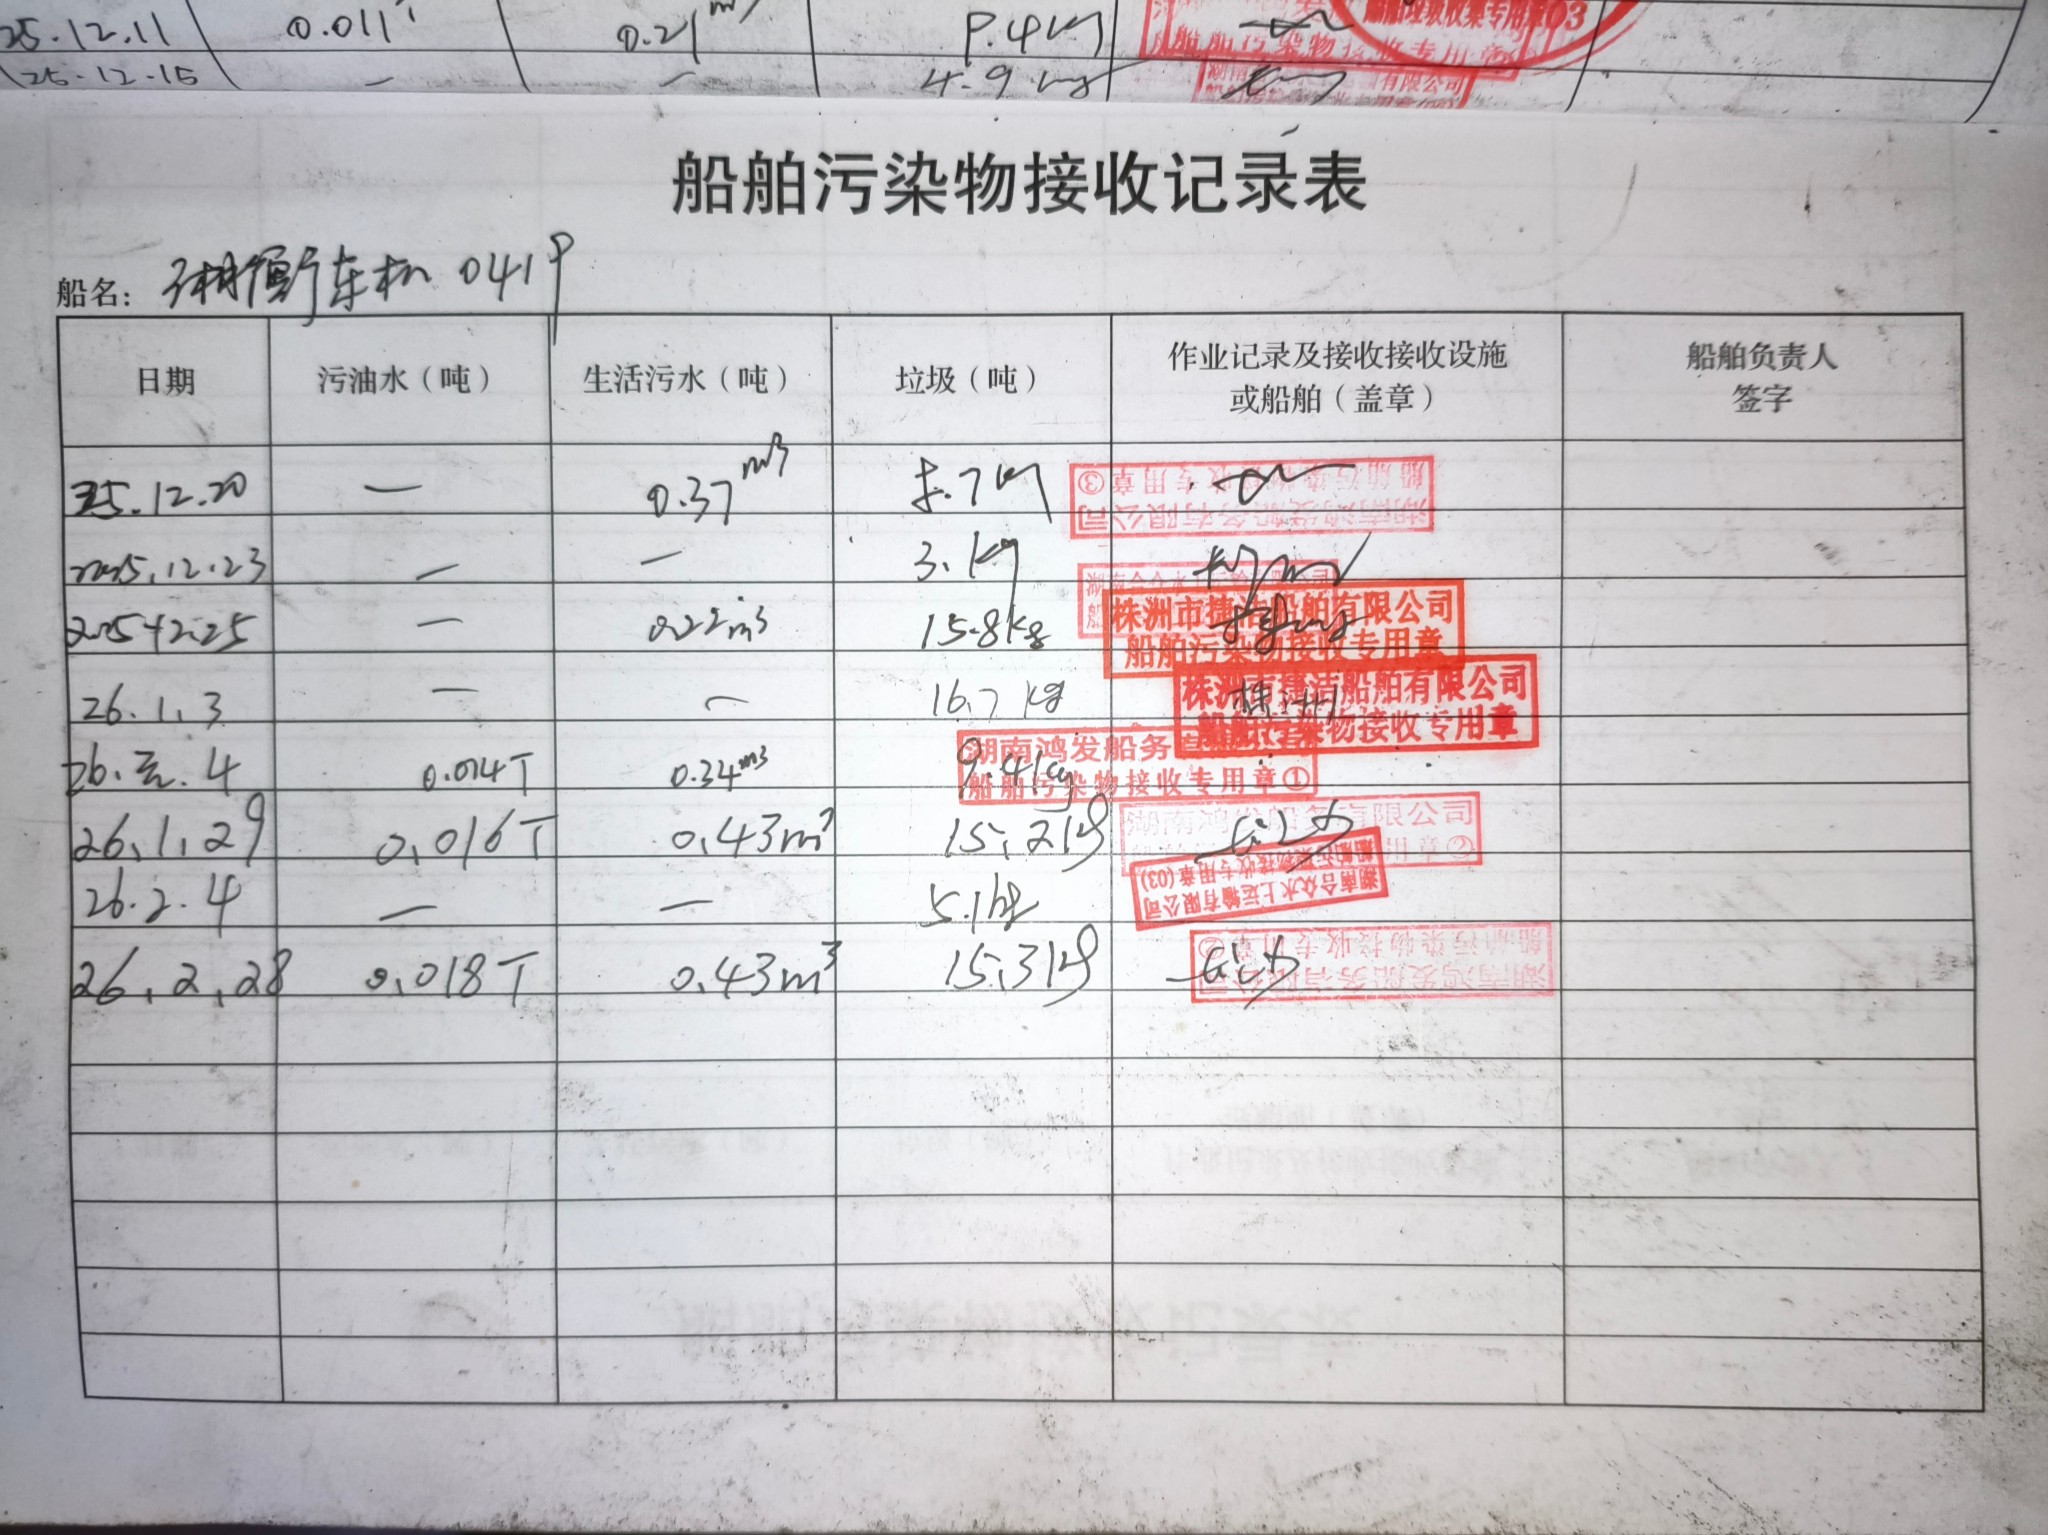 25.12.11 0.011T 0.21m³ 9.4kg
25.12.15 — — 4.9kg
船舶垃圾收集专用章03
船舶污染物接收专用章
有限公司
船舶污染物接收记录表
船名: 湘衡东机 0419
日期 污油水（吨） 生活污水（吨） 垃圾（吨） 作业记录及接收接收设施或船舶（盖章） 船舶负责人签字
25.12.20 — 0.37m³ 5.7kg
湖南鸿发船务有限公司
船舶污染物接收专用章③
2025.12.23 — — 3.kg
2025.12.25 — 0.22m³ 15.8kg
株洲市捷洁船舶有限公司
船舶污染物接收专用章
26.1.3 — — 16.7kg 株洲
株洲市捷洁船舶有限公司
船舶污染物接收专用章
26.元.4 0.014T 0.34m³ 9.4kg
湖南鸿发船务有限公司
船舶污染物接收专用章①
26.1.29 0.016T 0.43m³ 15.2kg
湖南鸿发船务有限公司
用章②
26.2.4 — — 5.1kg
湖南合众水上运输有限公司
船舶污染物接收专用章(03)
26.2.28 0.018T 0.43m³ 15.3kg
湖南鸿发船务有限公司
船舶污染物接收专用章②